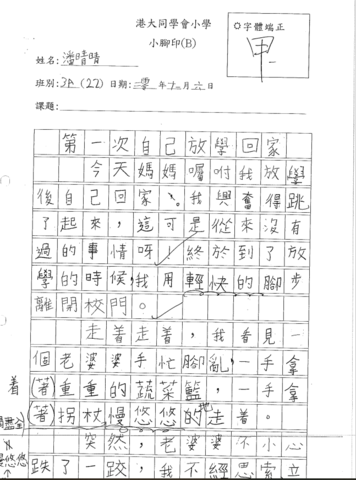 港大同學會小學
小腳印(B)
◎字體端正
甲
姓名：潘晴晴
班別：3A(22) 日期：二零 年十一月六日
課題：
第一次自己放學回家
今天媽媽囑咐我放學
後自己回家。我興奮得跳
了起來，這可是從來沒有
過的事情呀！終於到了放
學的時候，我用輕快的腳步
離開校門。
走着走着，我看見一
個老婆婆手忙腳亂，一手拿
着
(著)重重的蔬菜籃，一手拿
(著)拐杖慢悠悠的走着。
地
突然，老婆婆不小心
慢悠悠
跌了一跤，我不經思索立